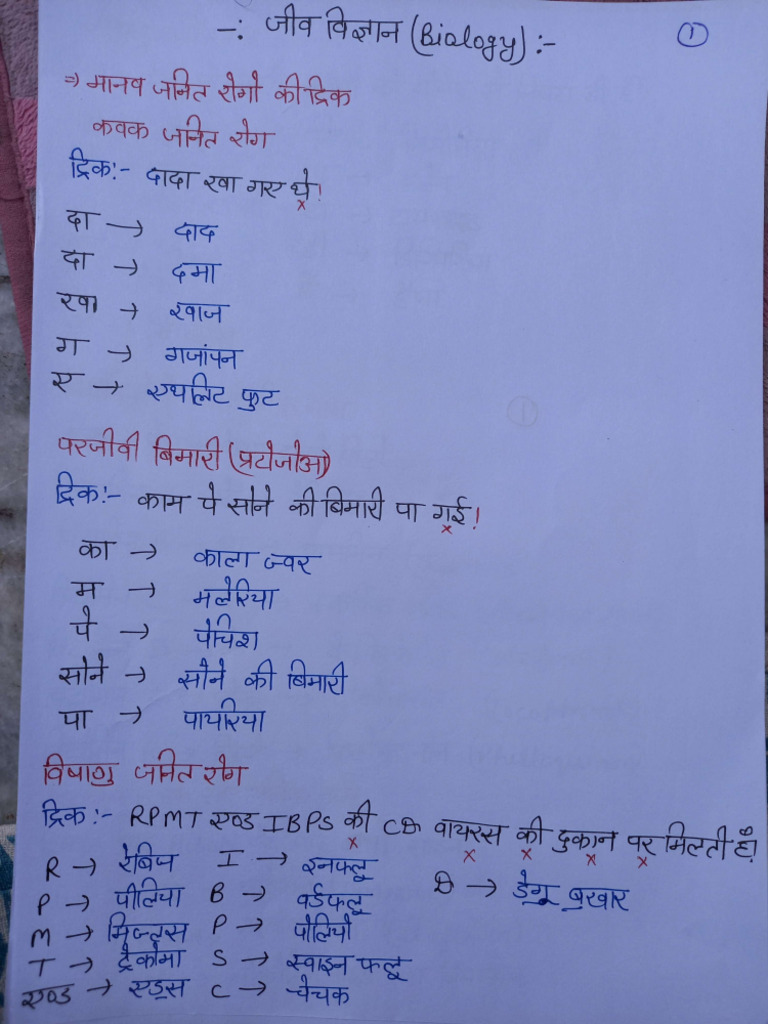 -: जीव विज्ञान (Biology) :-
1
⇒ मानव जनित रोगो की ट्रिक
कवक जनित रोग
ट्रिक:- दादा खा गए थे!
x
दा → दाद
दा → दमा
खा → खाज
ग → गजांपन
ए → एथलिट फुट
परजीवी बिमारी (प्रटोजोआ)
ट्रिक:- काम पे सोने की बिमारी पा गई!
x
का → काला ज्वर
म → मलेरिया
पे → पेचिश
सोने → सोने की बिमारी
पा → पायरिया
विषाणु जनित रोग
ट्रिक:- RPMT एण्ड IBPS की CD वायरस की दुकान पर मिलती हैं!
x x x x x
R → रेबिज I → इनफ्लू
D → डेगू बुखार
P → पीलिया B → वर्डफ्लू
M → मिज्लस P → पोलियो
T → ट्रेकोमा S → स्वाइन फ्लू
एण्ड → एड्स C → चेचक